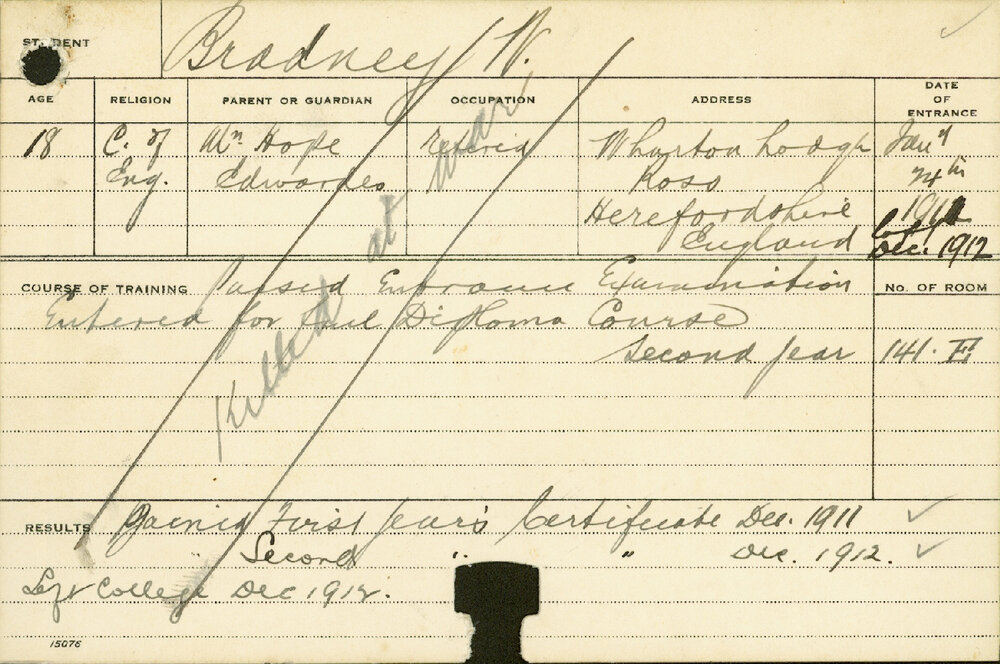 STUDENT Bradney W.
AGE RELIGION PARENT OR GUARDIAN OCCUPATION ADDRESS DATE OF ENTRANCE
18 C. of Mrs Hope Retired Wharton Lodge Jany
Eng. Edwardes Ross 24th
Herefordshire 1911
England Left Dec. 1912
Killed at war
COURSE OF TRAINING Passed Entrance Examination No. OF ROOM
Entered for full Diploma Course
Second Year 141. E
RESULTS Gained First Year's Certificate Dec. 1911 ✓
Second " " Dec. 1912. ✓
Left College Dec 1912.
15076